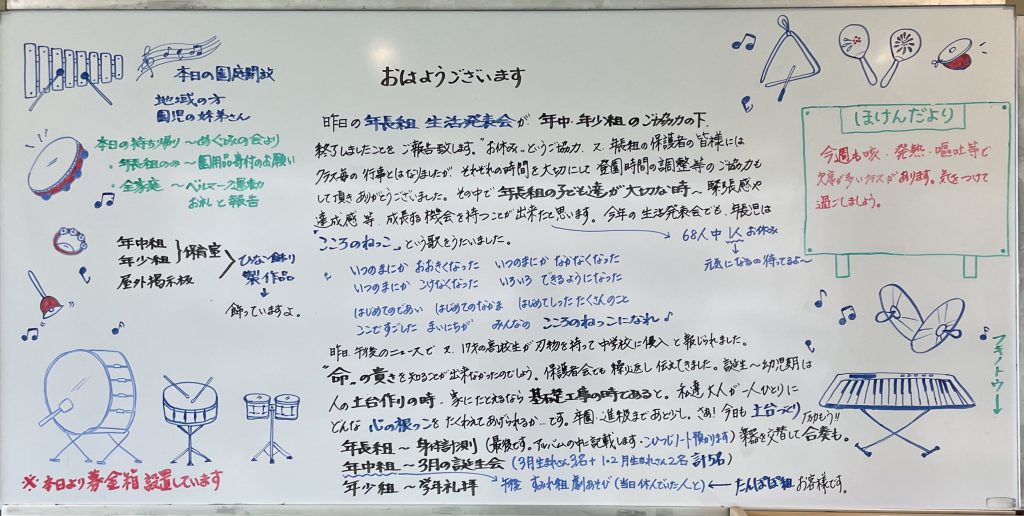 本日の園庭開放
地域の方
園児の妹弟さん
本日の持ち帰り～めぐみの会より
・年長組のみ～園用品寄付のお願い
・全家庭～ベルマーク運動
お礼と報告
年中組
年少組
保育室
屋外掲示板
ひな飾り
製作品
飾っていますよ。
※本日より募金箱設置しています
おはようございます
昨日の年長組 生活発表会が 年中・年少組のご協力の下、
終了しましたことをご報告致します。"お休み"というご協力、又、年長組の保護者の皆様には
クラス毎の行事とはなりましたが、それぞれの時間を大切にして登園時間の調整等のご協力も
して頂きありがとうございました。その中で年長組の子ども達が大切な時～緊張感や
達成感等、成長する機会を持つことが出来たと思います。今年の生活発表会でも、年長児は
"こころのねっこ"という歌をうたいました。
68人中 1人 お休み
元気になるの待ってるよ～
いつのまにか おおきくなった いつのまにか なかなくなった
いつのまにか こけなくなった いろいろ できるようになった
はじめてのであい はじめてのなかま はじめてしった たくさんのこと
ここですごした まいにちが みんなの こころのねっこになれ♪
昨日、午後のニュースで 又、17才の高校生が刃物を持って中学校に侵入と報じられました。
"命"の貴さを知ることが出来なかったのでしょう。保護者会でも繰り返し伝えてきました。誕生～幼児期は
人の土台作りの時、家にたとえるなら基礎工事の時であると。私達大人が一人ひとりに
どんな心の根っこをたくわえてあげられるか…です。卒園・進級まであと少し。さあ！今日も土台づくりがんばろう!!
年長組～身体計測（最後です。アルバムの中に記載します・こひつじノート預かります）楽器を交替して合奏も。
年中組～3月の誕生会（3月生まれさん3名＋1・2月生まれさん2名 計5名）
年少組～学年礼拝
午後 すみれ組劇あそび（当日休んでいた人と）←たんぽぽ組 お客様です。
ほけんだより
今週も咳・発熱・嘔吐等で
欠席が多いクラスがあります。気をつけて
過ごしましょう。
フキノトウ→